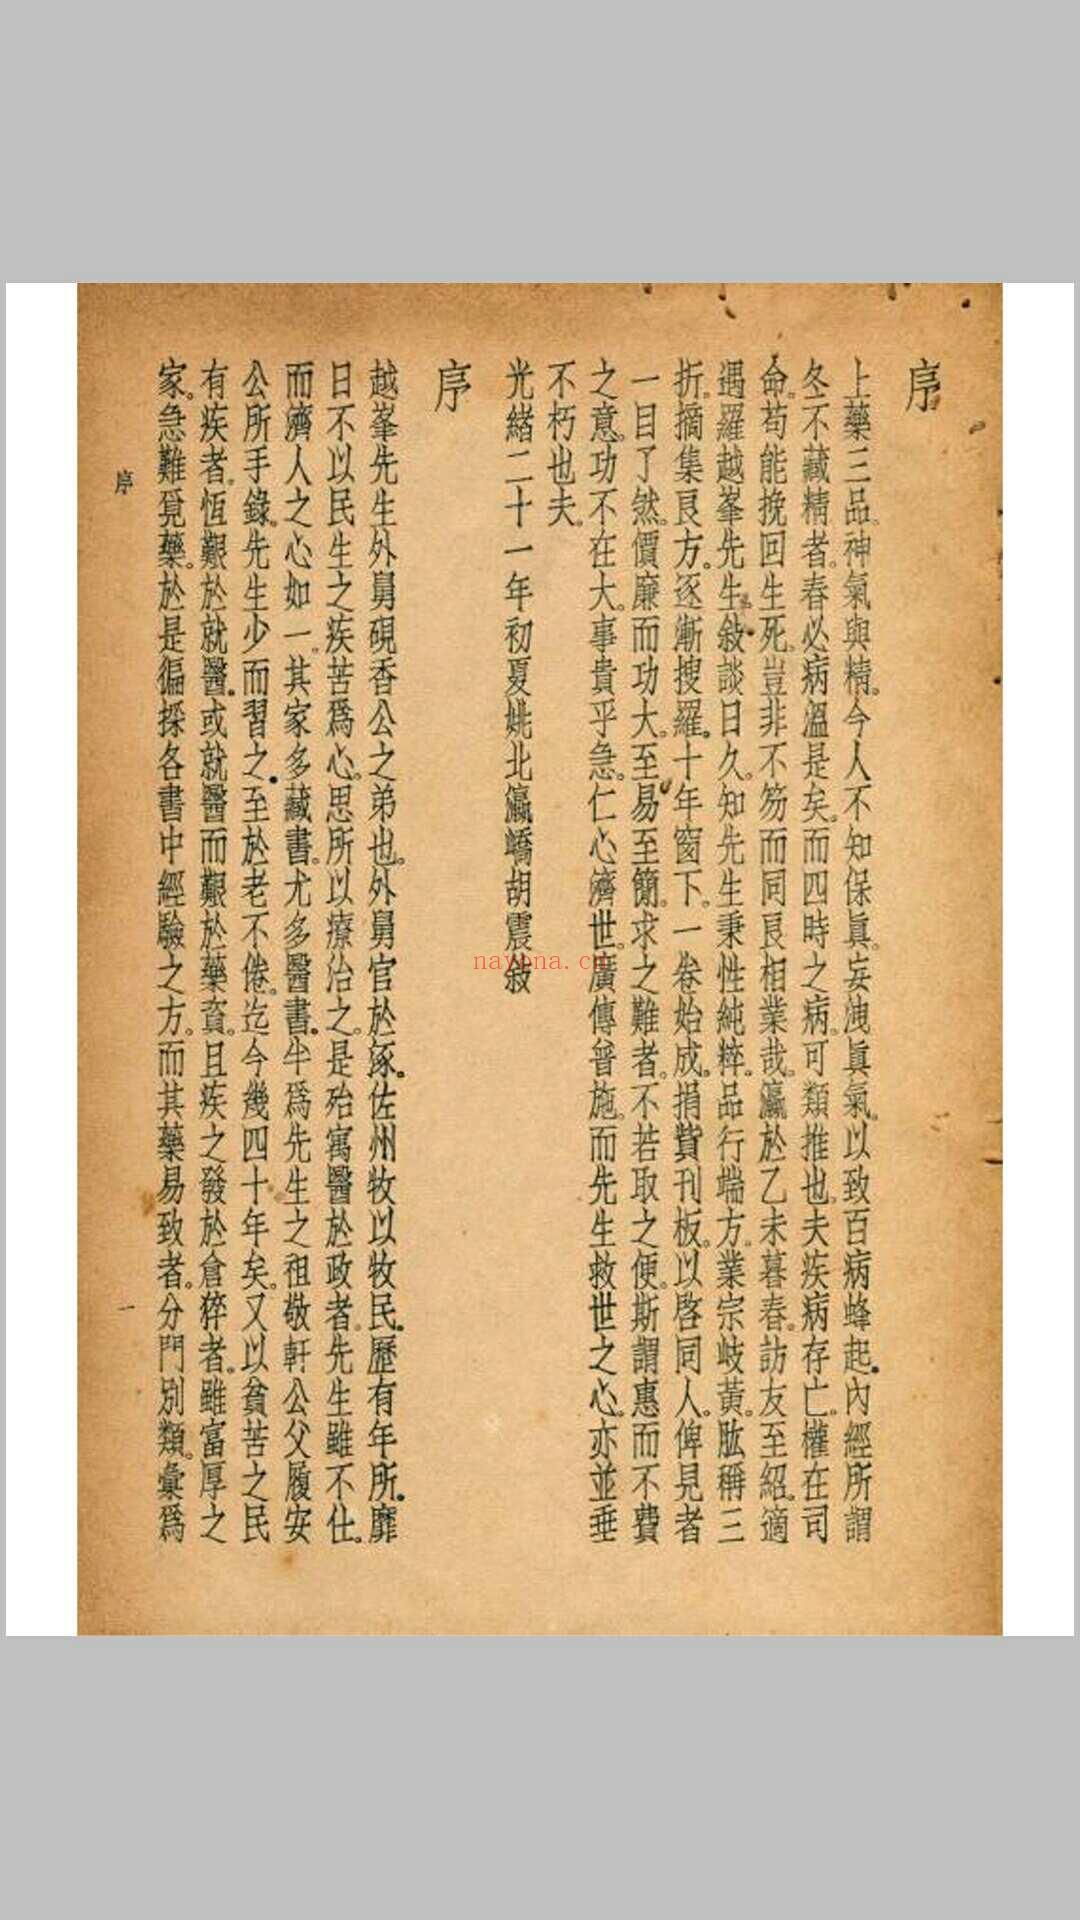 序
上藥三品。神氣與精。今人不知保眞。妄洩眞氣。以致百病蜂起。內經所謂
冬不藏精者。春必病溫是矣。而四時之病。可類推也。夫疾病存亡。權在司
命。苟能挽回生死。豈非不笏而同良相業哉。瀛於乙未暮春。訪友至紹。適
遇羅越峯先生。敍談日久。知先生秉性純粹。品行端方。業宗岐黃。肱稱三
折。摘集良方。逐漸搜羅。十年窗下。一卷始成。捐貲刊板。以啓同人。俾見者
一目了然。價廉而功大。至易至簡。求之難者。不若取之便。斯謂惠而不費
之意。功不在大。事貴乎急。仁心濟世。廣傳普施。而先生救世之心。亦並垂
不朽也夫。
光緒二十一年初夏姚北瀛嶠胡震敍
序
越峯先生外舅硯香公之弟也。外舅官於涿。佐州牧以牧民。歷有年所。靡
日不以民生之疾苦爲心。思所以療治之。是殆寓醫於政者。先生雖不仕。
而濟人之心如一。其家多藏書。尤多醫書。半爲先生之祖敬軒公父履安
公所手錄。先生少而習之。至於老不倦。迄今幾四十年矣。又以貧苦之民
有疾者。恆艱於就醫。或就醫而艱於藥資。且疾之發於倉猝者。雖富厚之
家。急難覓藥。於是徧採各書中經驗之方。而其藥易致者。分門別類。彙爲
序
一
nayona.cn